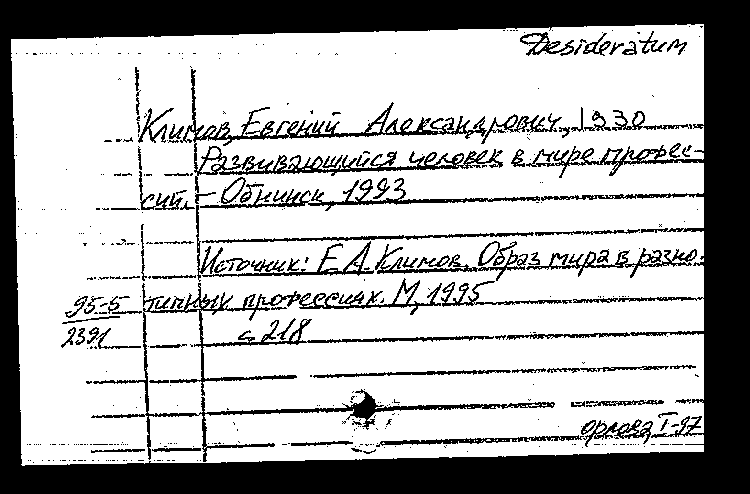 Desideratum
Климов, Евгений Александрович, 1930
Развивающийся человек в мире профес-
сий. - Обнинск, 1993
Источник: Е А Климов. Образ мира в разно-
95-5 типных профессиях. М, 1995
2391 с. 218
орлова, I-97